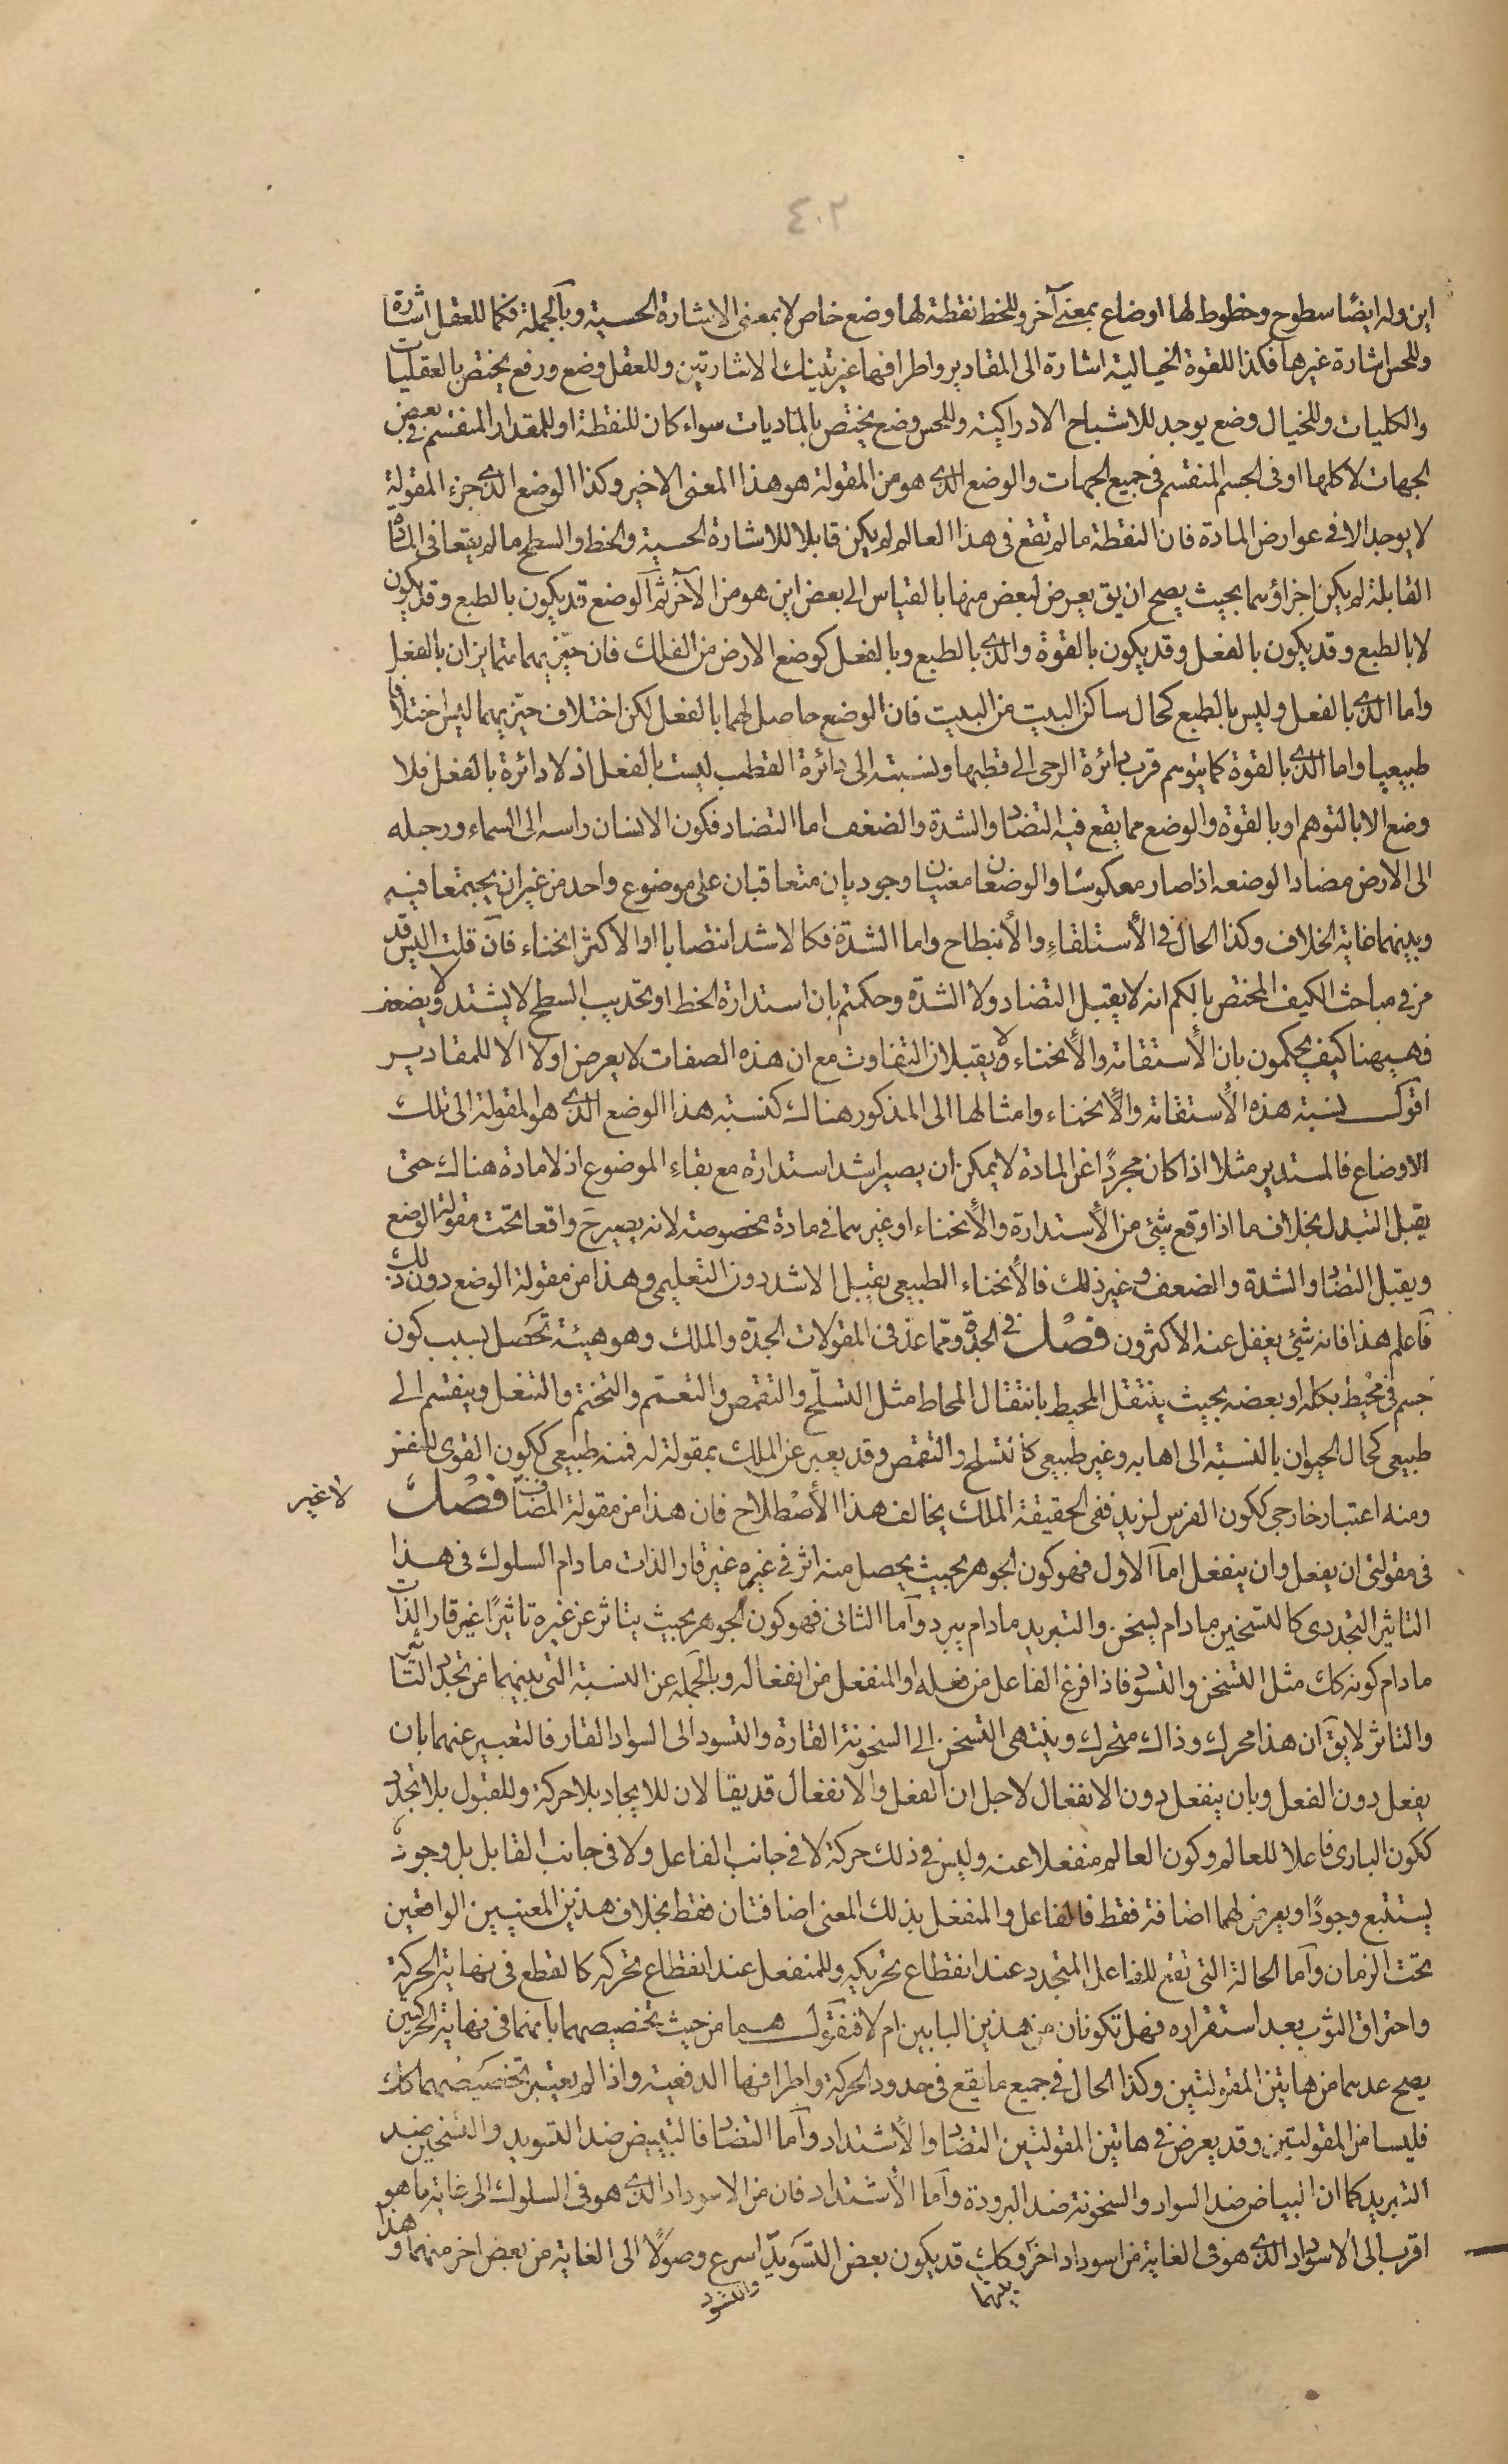 ٤٠٢
اين وله ايضًا سطوح وخطوط لها اوضاع بمعنى آخر وللخط نقطة لها وضع خاص لا بمعنى الاشارة الحسية وبالجملة فكما للعقل اشارة
وللحس اشارة غيرها فكذا للقوة الخيالية اشارة الى المقادير واطرافها غير تينك الاشارتين وللعقل وضع ورفع يختص بالعقليات
والكليات وللخيال وضع يوجد للاشباح الادراكية وللحس وضع يختص بالماديات سواء كان للنقطة او للمقدار المنقسم في بعض
الجهات لا كلها او فى الجسم المنقسم فى جميع الجهات والوضع الذى هو من المقولة هو هذا المعنى الاخير وكذا الوضع الذى جزء المقولة
لا يوجد الا فى عوارض المادة فان النقطة ما لم تقع فى هذا العالم لم يكن قابلا للاشارة الحسية والخط والسطح ما لم يقعا فى المادة
القابلة لم يكن اجزاؤهما بحيث يصح ان يق يعرض لبعض منها بالقياس الى بعض اين هو من الآخر ثم الوضع قد يكون بالطبع وقد يكون
لا بالطبع وقد يكون بالفعل وقد يكون بالقوة والذى بالطبع وبالفعل كوضع الارض من الفلك فان حيّزيهما متمايزان بالفعل
واما الذى بالفعل وليس بالطبع كحال ساكن البيت من البيت فان الوضع حاصل لهما بالفعل لكن اختلاف حيّزيهما ليس اختلافا
طبيعيا واما الذى بالقوة كما يتوهم قرب دائرة الرحى الى قطبها ونسبته الى دائرة القطب ليست بالفعل اذ لا دائرة بالفعل فلا
وضع الا بالتوهم او بالقوة والوضع مما يقع فيه التضاد والشدة والضعف اما التضاد فكون الانسان راسه الى السماء ورجله
الى الارض مضادا لوضعه اذا صار معكوسًا والوضعان معنيان وجوديان متعاقبان على موضوع واحد من غير ان يجتمعا فيه
وبينهما غاية الخلاف وكذا الحال فى الأستلقاء والأنبطاح واما الشدة فكالاشد انتصابا او الاكثر انحناء فان قلت اليس قد
مر فى مباحث الكيف المختص بالكم انه لا يقبل التضاد ولا الشدّة وحكمتم بان استدارة الخط او تحديب السطح لا يشتد ولا يضعف
فهيهنا كيف يحكمون بان الأستقامة والأنحناء لا يقبلان التفاوت مع ان هذه الصفات لا يعرض اولا الا للمقادير
اقول نسبة هذه الأستقامة والأنحناء وامثالها الى المذكور هناك كنسبة هذا الوضع الذى هو المقولة الى تلك
الاوضاع فالمستدير مثلا اذا كان مجردًا عن المادة لا يمكن ان يصير اشد استدارة مع بقاء الموضوع اذ لا مادة هناك حتى
يقبل التبدل بخلاف ما اذا وقع شئ من الأستدارة والأنحناء او غيرهما فى مادة مخصوصة لانه يصير ح واقعا تحت مقولة الوضع
ويقبل التضاد والشدة والضعف وغير ذلك فالأنحناء الطبيعى يقبل الاشد دون التعليمى وهذا من مقولة الوضع دون ذلك
فاعلم هذا فانه شئ يغفل عنه الاكثرون فصل فى الجدة ومما عد فى المقولات الجدّة والملك وهو هيئة تحصل بسبب كون
جسم فى محيط بكله او بعضه بحيث ينتقل المحيط بانتقال المحاط مثل التسلّح والتقمص والتعمّم والتختم والتنعل وينقسم الى
طبيعى كحال الحيوان بالنسبة الى اهابه وغير طبيعى كالتسلح والتقمص وقد يعبر عن الملك بمقولة له فمنه طبيعى ككون القوى للنفس
ومنه اعتبار خارجى ككون الفرس لزيد ففى الحقيقة الملك يخالف هذا الأصطلاح فان هذا من مقولة المضاف فصل
لا غير
فى مقولتى ان يفعل وان ينفعل اما الاول فهو كون الجوهر بحيث يحصل منه اثر فى غيره غير قار الذات ما دام السلوك فى هذا
التاثير التجددى كالتسخين ما دام يسخن والتبريد ما دام يبرد وأما الثانى فهو كون الجوهر بحيث يتاثر عن غيره تاثيرًا غير قار الذات
ما دام كونه كك مثل التسخن والتسود فاذا فرغ الفاعل من فعله او المنفعل من انفعاله وبالجملة عن النسبة التى بينهما من تجدد التاثير
والتاثر لا يق ان هذا محرك وذاك متحرك وينتهى التسخن الى السخونة القارة والتسود الى السواد القار فالتعبير عنهما بان
يفعل دون الفعل وبان ينفعل دون الانفعال لاجل ان الفعل والانفعال قد يقالان للايجاد بلا حركة وللقبول بلا تجدد
ككون البارى فاعلا للعالم وكون العالم منفعلا عنه وليس فى ذلك حركة لا فى جانب الفاعل ولا فى جانب القابل بل وجود
يستتبع وجودًا ويعرض لهما اضافة فقط فالفاعل والمنفعل بذلك المعنى اضافتان فقط بخلاف هذين المعنيين الواقعين
تحت الزمان وأما الحالة التى تقع للفاعل المتجدد عند انقطاع تحريكه وللمنفعل عند انقطاع تحركه كالقطع فى نهاية الحركة
واحتراق الثوب بعد استقراره فهل تكونان من هذين البابين ام لا فنقول هما من حيث تخصيصهما بانهما فى نهاية الحركتين
يصح عدهما من هاتين المقولتين وكذا الحال فى جميع ما يقع فى حدود الحركة واطرافها الدفعية واذا لم يعتبر تخصيصهما كك
فليسا من المقولتين وقد يعرض فى هاتين المقولتين التضاد والأشتداد وأما التضاد فالتبييض ضد التسويد والتسخين ضد
التبريد كما ان البياض ضد السواد والسخونة ضد البرودة وأما الأشتداد فان من الاسوداد الذى هو فى السلوك الى غاية ما هو
اقرب الى الاسوداد الذى هو فى الغاية من اسوداد اخر وكك قد يكون بعض التسويد اسرع وصولًا الى الغاية من بعض اخر منهما وهذا
والتسود